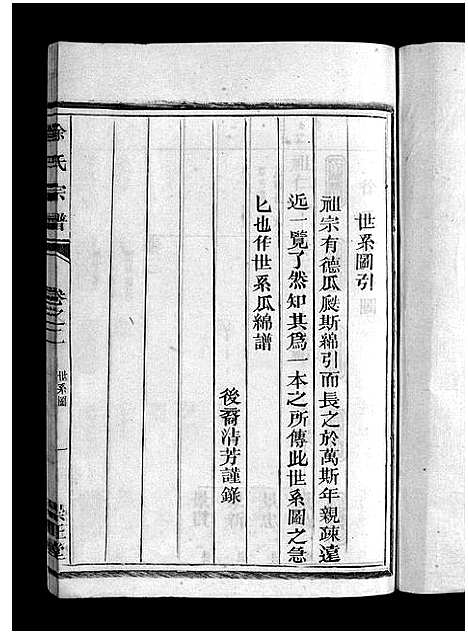 世系圖引
祖宗有德瓜瓞斯綿引而長之於萬斯年親疎遠
近一覽了然知其爲一本之所傳此世系圖之急
匕也作世系瓜綿譜
後裔清芳謹錄
徐氏宗譜
卷之二
世系圖
一